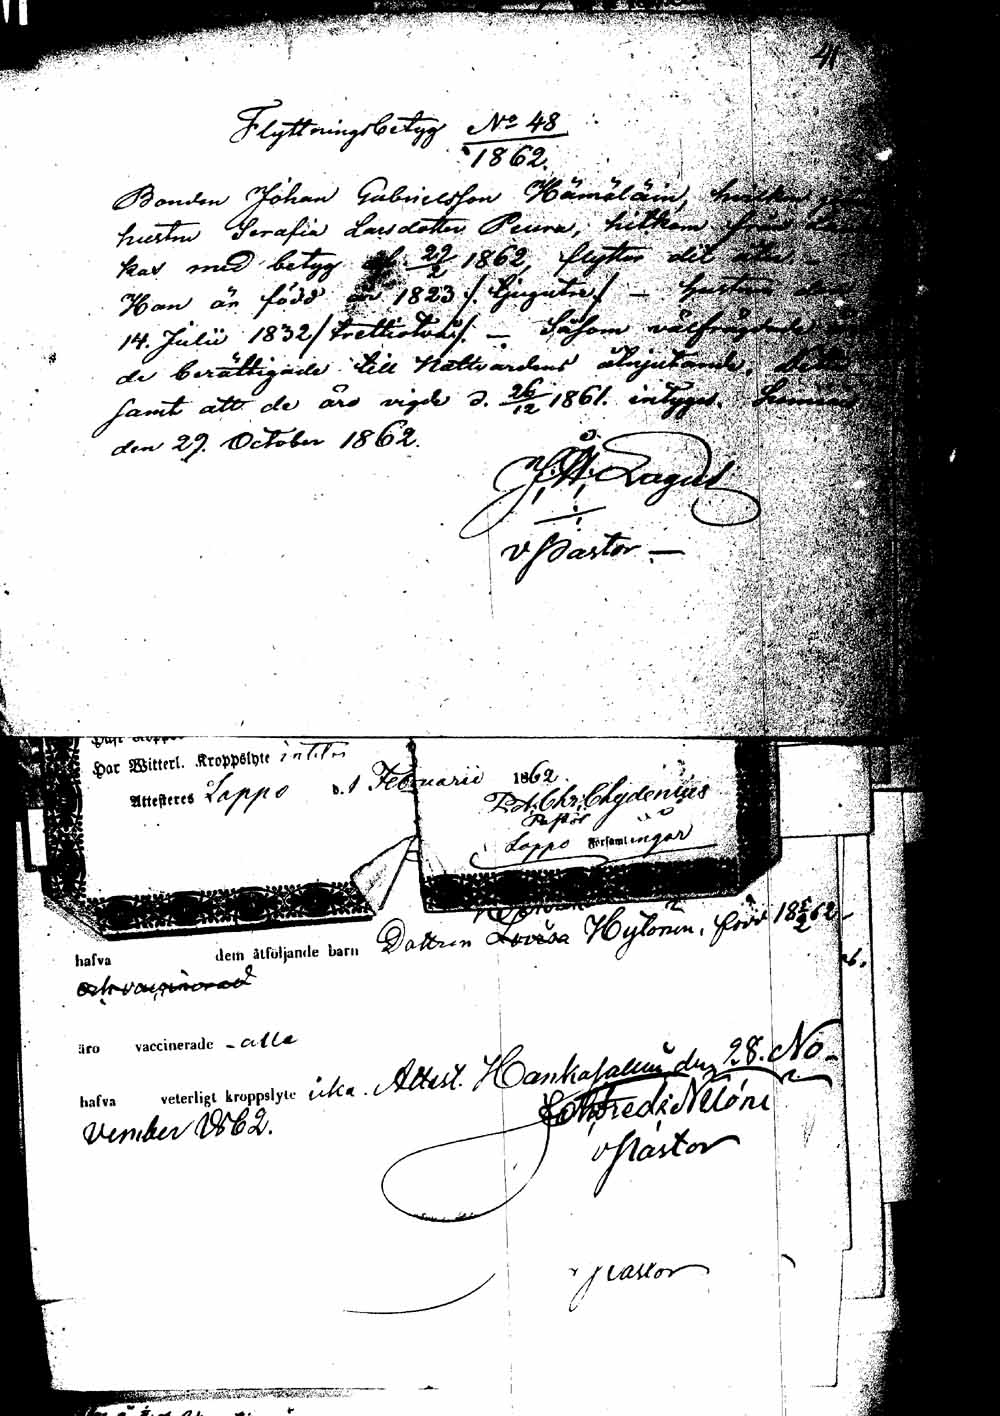 41
Flyttningsbetyg No 48
1862.
Bonden Johan Gabrielsson Hämäläin, hvilken
hustru Serafia Larsdotter Peura, hitkom från
kas med betyg af 27/2 1862, flyttar dit åter –
Han är född år 1823 /: tjugutre /: – hustrun den
14. Julii 1832 /: trettiotvå /: – Såsom välfrägdade
de berättigade till Nattvardens åtnjutande. Detta
samt att de äro vigde d. 26/12 1861. intygas.
den 27. October 1862.
Lagus
v Pastor –
Har Witterl. Kroppslyte intet
Attesteres Lappo d. 1 Februarii 1862.
Chr. Chydenius
Pastor
Lappo Församlingar
hafva dem åtföljande barn Dottren Lovisa Hytönen, född 18 5/2 62 –
och vaccinerad
äro vaccinerade – alla
hafva veterligt kroppslyte icke. Attest. Hankasalmi den 28. No-
vember 1862.
v Pastor
v Pastor